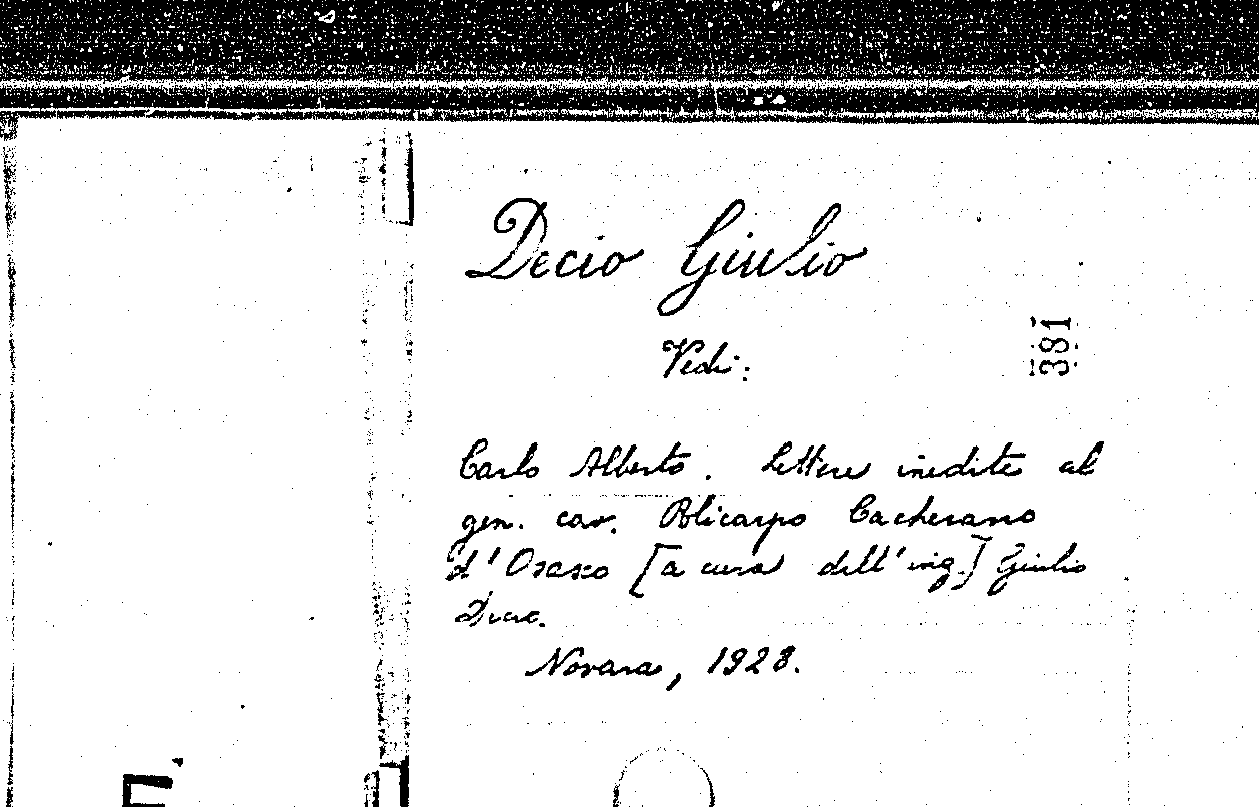 Decio Giulio
Vedi:
381
Carlo Alberto. Lettere inedite al
gen. cav. Policarpo Cacherano
d'Osasco [a cura dell'ing.] Giulio
Decio.
Novara, 1928.